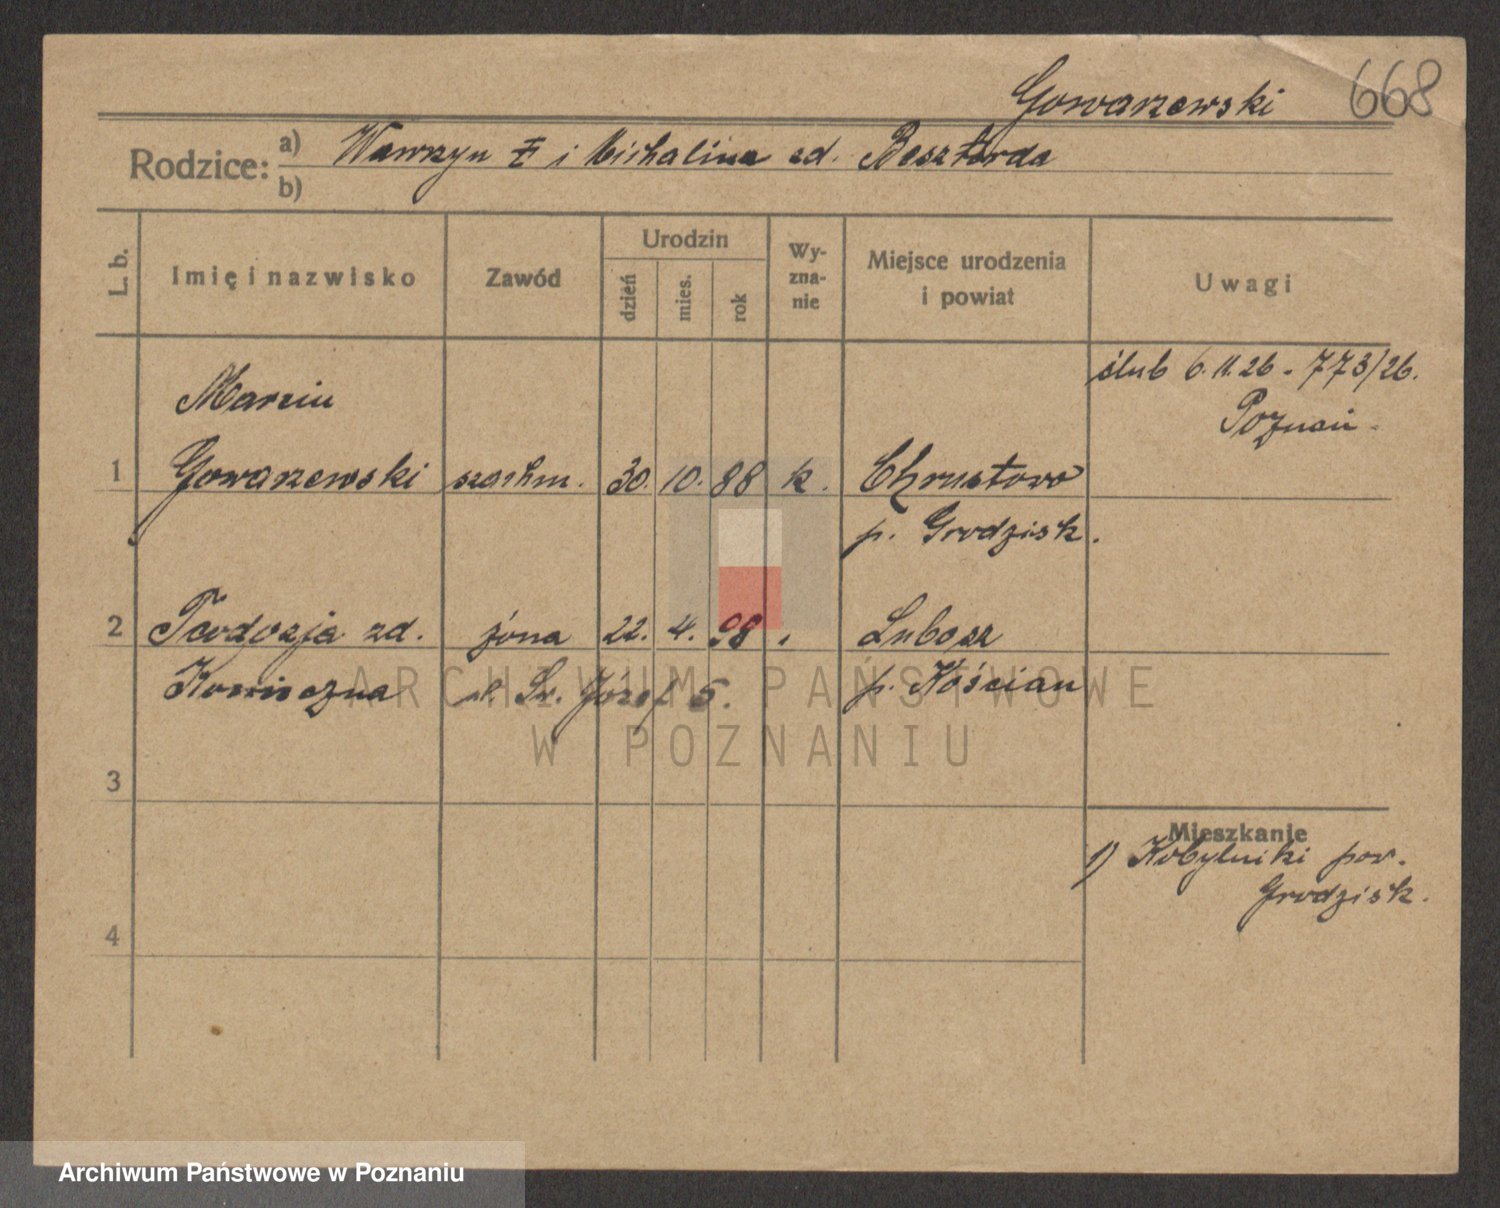 Gowarzewski 668
Rodzice: a) Wawrzyn i Michalina zd. Besztorda
b)
L. b.
Imię i nazwisko
Zawód
Urodzin
dzień mies. rok
Wy-
zna-
nie
Miejsce urodzenia
i powiat
Uwagi
ślub 6.11.26 - 773/26.
Poznań -
Marcin
1 Gowarzewski 30. 10. 88 k. Chrustowo
p. Grodzisk.
2 Teodozja zd. żona 22. 4. 98 Lubosz
Konieczna ul. Św. Józef 5. p. Kościan
ARCHIWUM PAŃSTWOWE
W POZNANIU
3
Mieszkanie
1) Kobylniki pow.
Grodzisk.
4
Archiwum Państwowe w Poznaniu